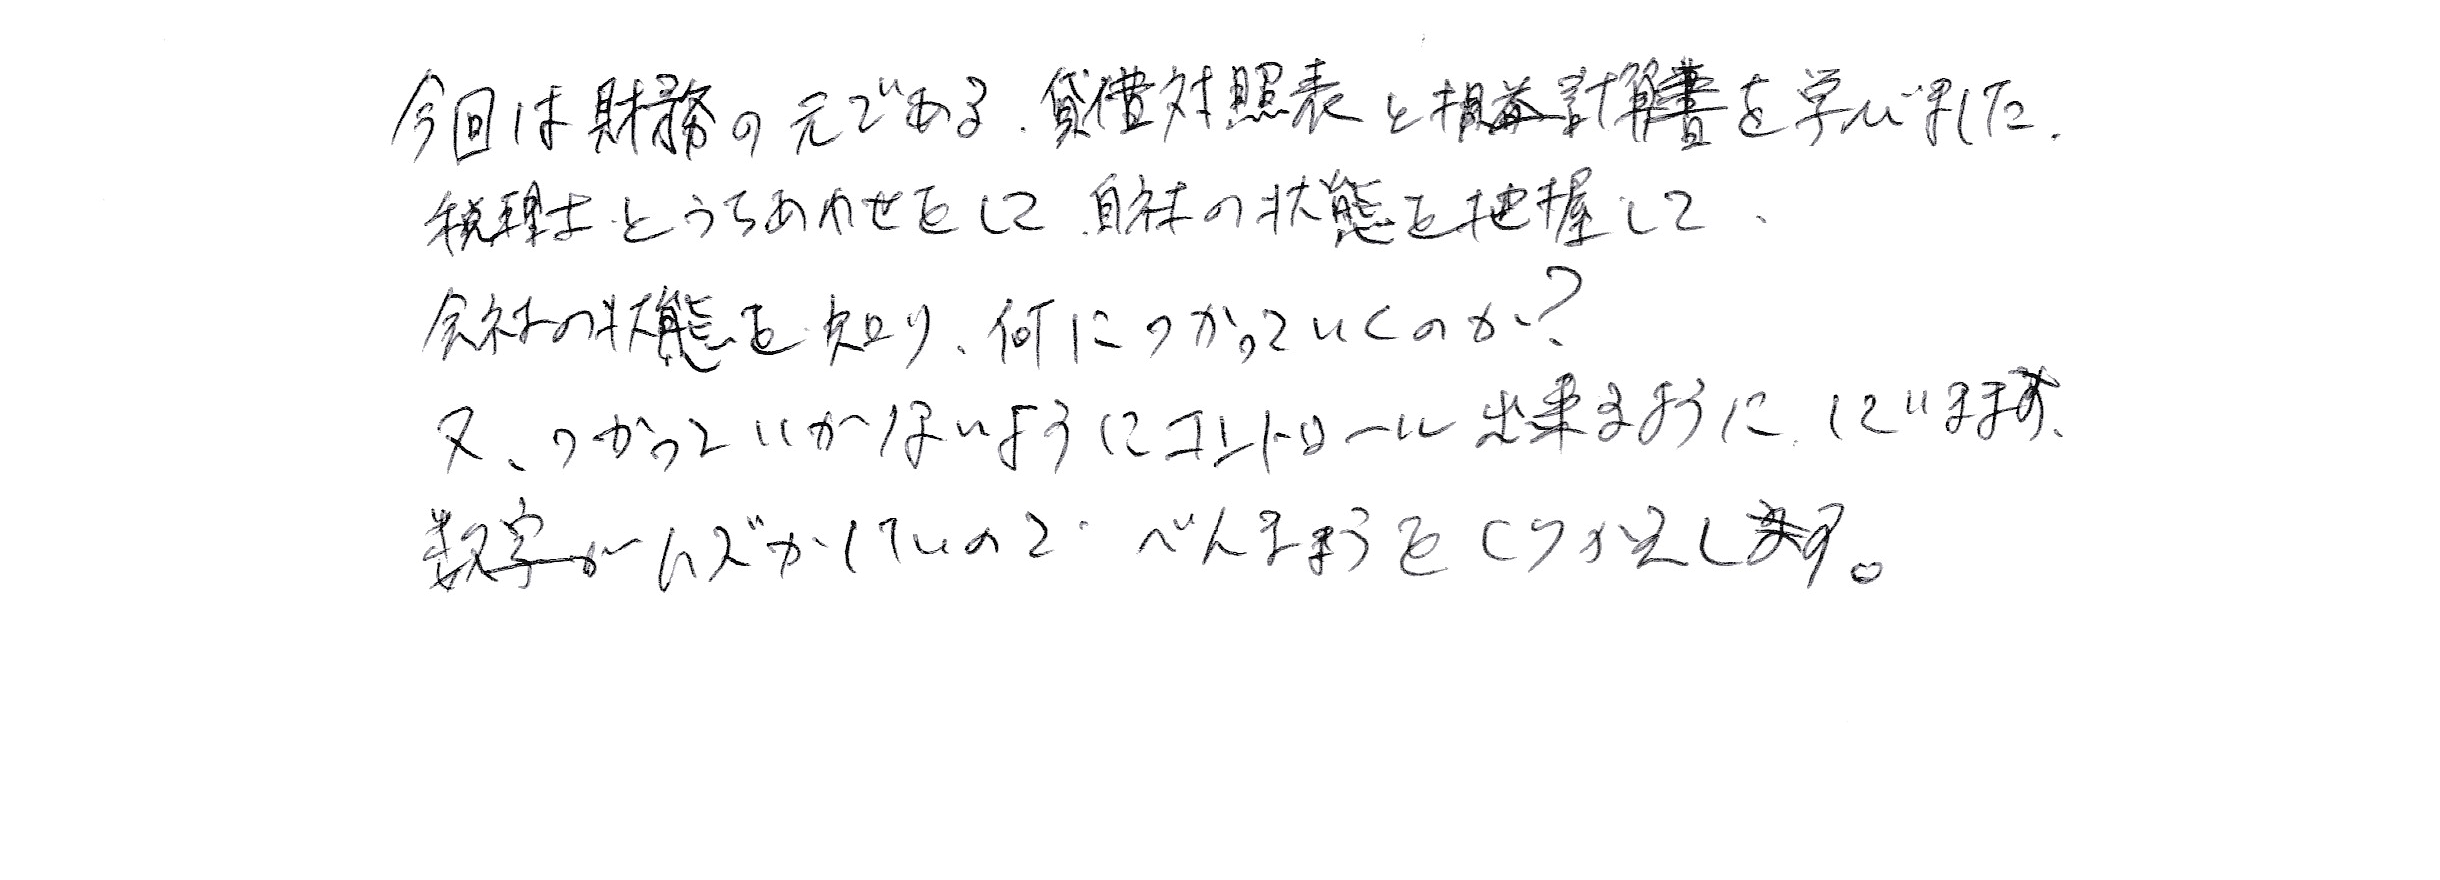 今回は財務の元である、貸借対照表と損益計算書を学びました。
税理士とうちあわせをして、自社の状態を把握して、
会社の状態を知り、何につかっていくのか?
又、つかっていかないようにコントロール出来るように、していきます、
数字がムズかしいので、べんきょうをくりかえします。